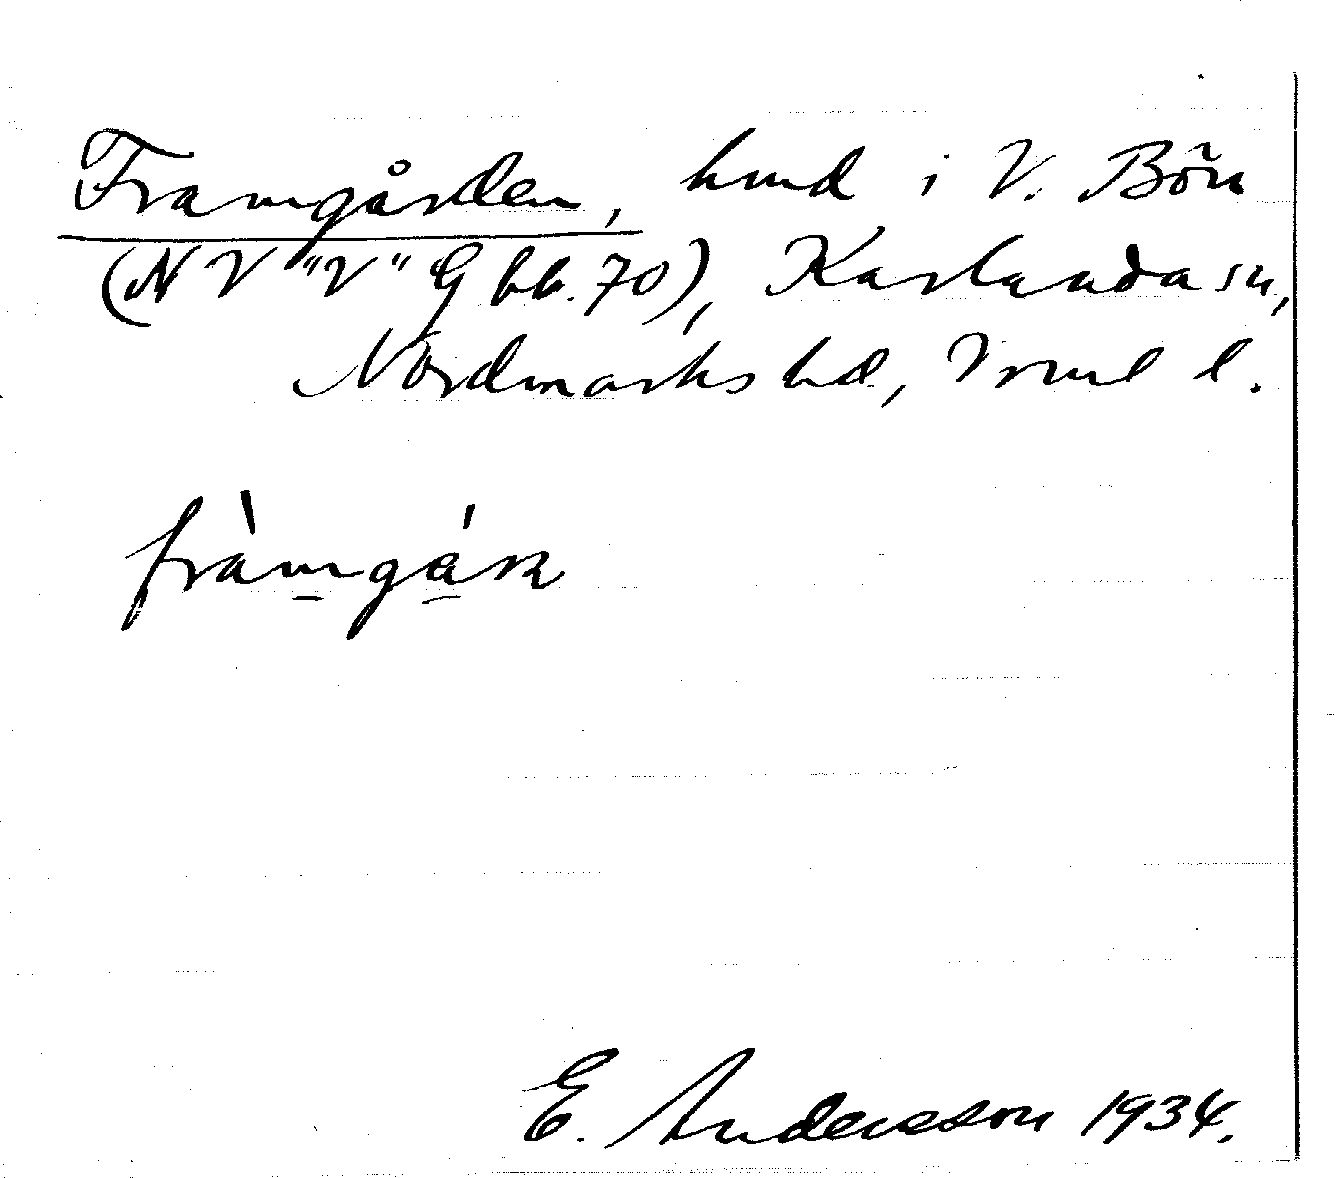 Framgården, hmd i V. Bön
(N V "V" G bb. 70), Karlanda sn,
Nordmarks hd, Vrml l.
framgárn
E. Andersson 1934.